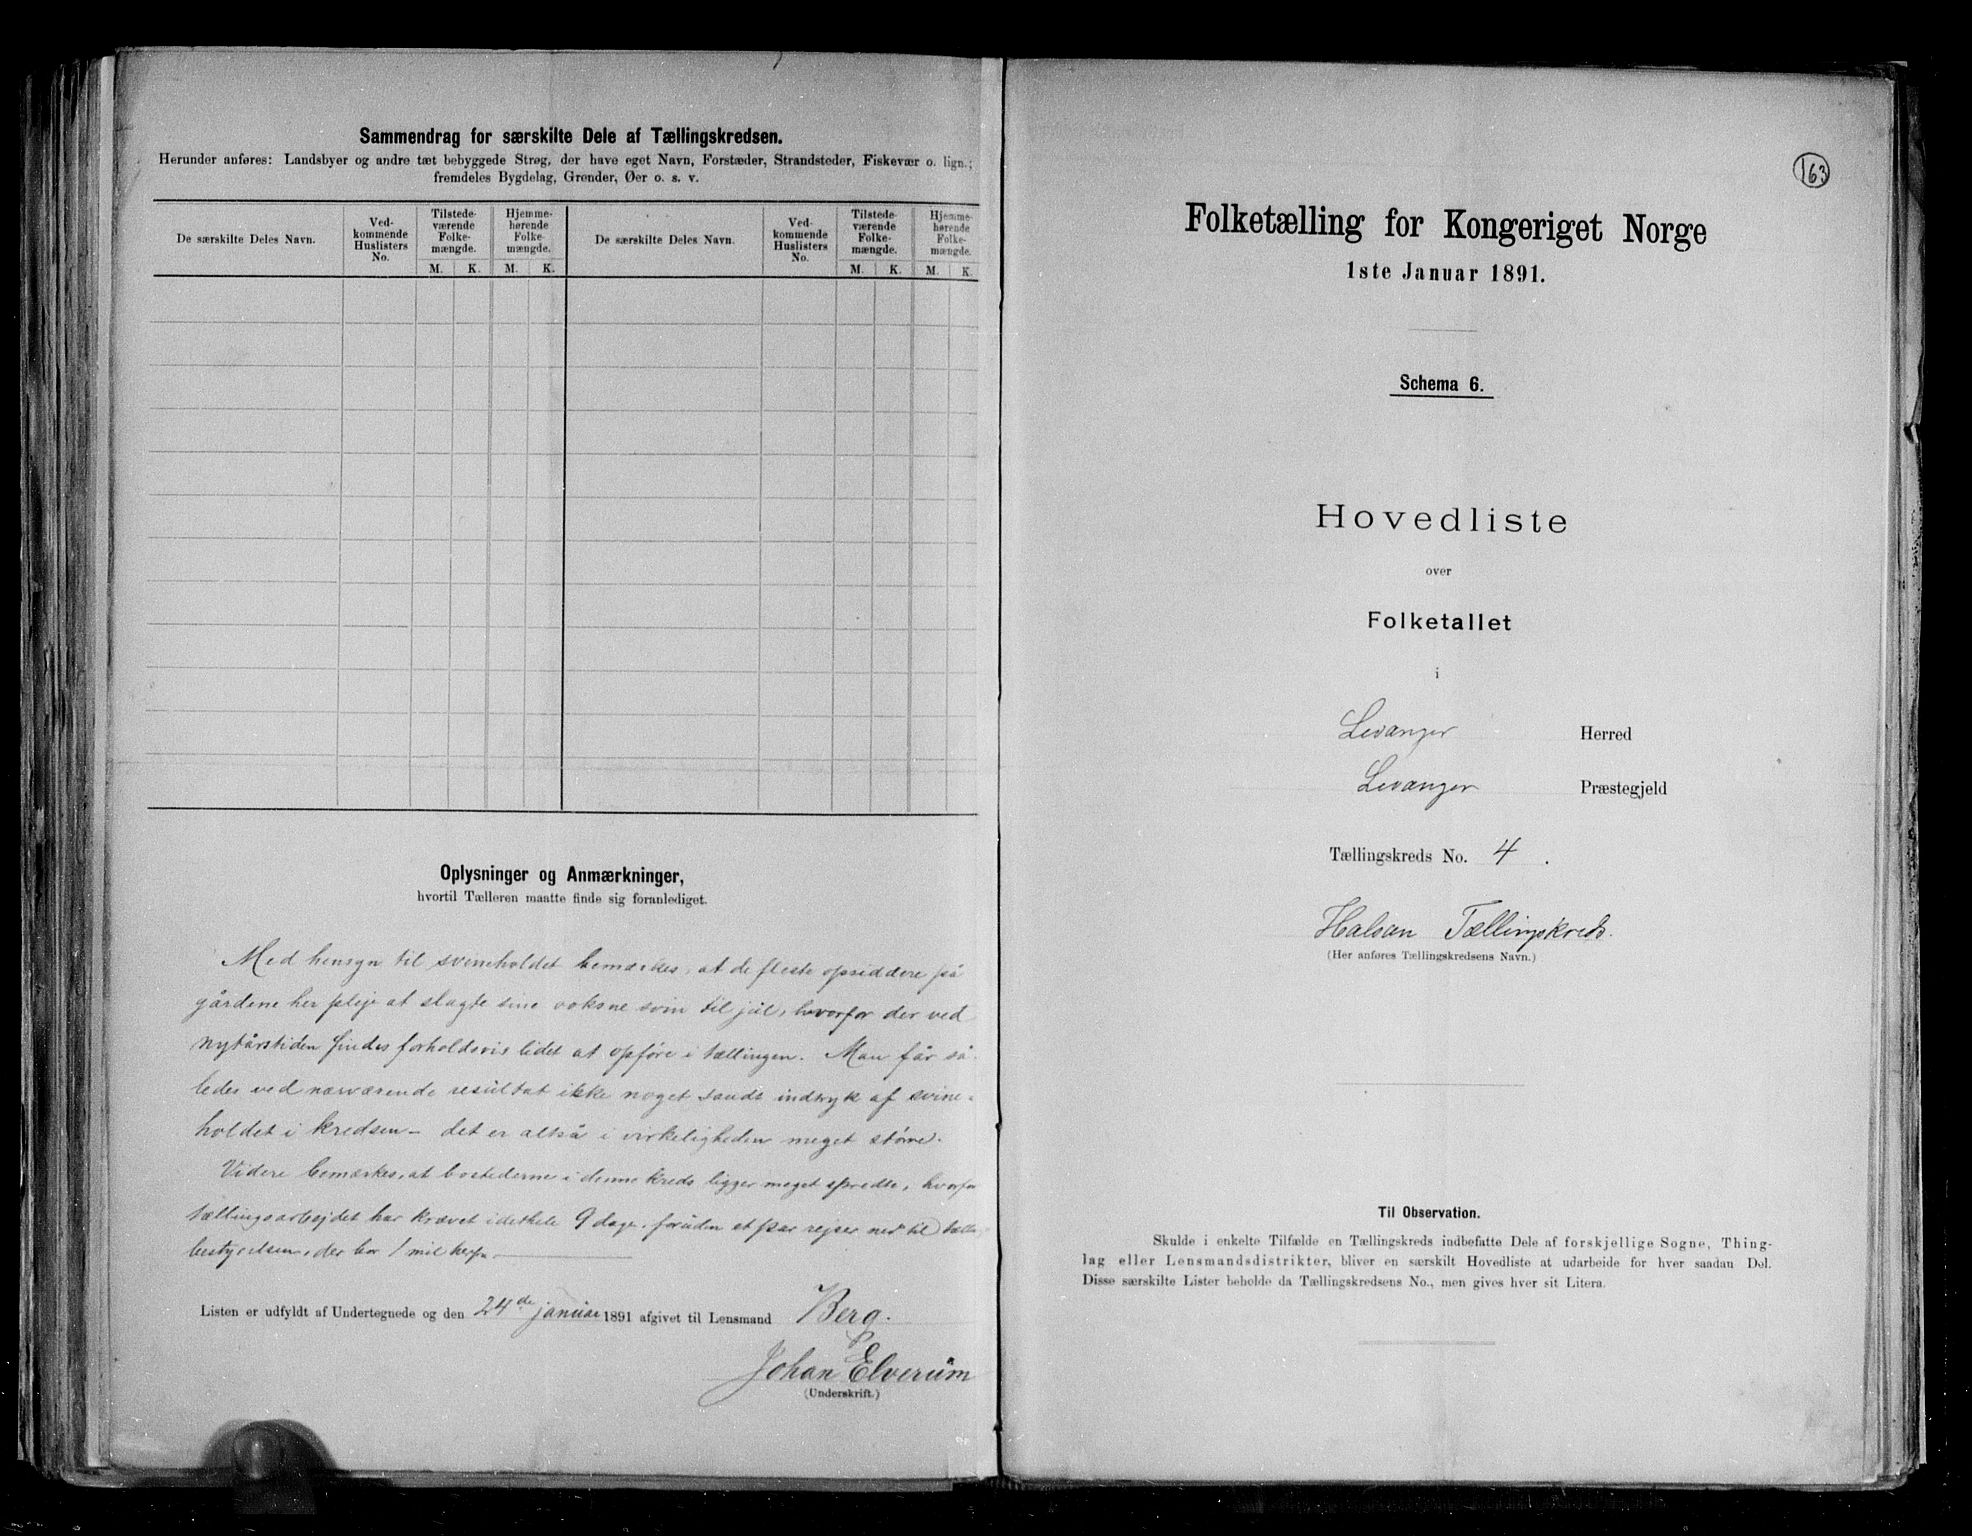 Sammendrag for særskilte Dele af Tællingskredsen.
Herunder anføres: Landsbyer og andre tæt bebyggede Strøg, der have eget Navn, Forstæder, Strandsteder, Fiskevær o. lign.;
fremdeles Bygdelag, Grender, Øer o. s. v.
De særskilte Deles Navn.
Ved-
kommende
Huslisters
No.
Tilstede-
værende
Folke-
mængde.
M. K.
Hjemme-
hørende
Folke-
mængde.
M. K.
De særskilte Deles Navn.
Ved-
kommende
Huslisters
No.
Tilstede-
værende
Folke-
mængde.
M. K.
Hjemme-
hørende
Folke-
mængde.
M. K.
Oplysninger og Anmærkninger,
hvortil Tælleren maatte finde sig foranlediget.
Med hensyn til svineholdet bemærkes, at de fleste opsiddere på
gårdene her pleje at slagte sine voksne svin til jul, hvorfor der ved
nytårstiden findes forholdsvis lidet at opføre i tællingen. Man får så-
ledes ved nærværende resultat ikke noget sandt indtryk af svine-
holdet i kredsen – det er altså i virkeligheden meget større.
Videre bemærkes, at bostederne i denne kreds ligger meget spredte, hvorfor
tællingsarbejdet har krævet i det hele 9 dage, foruden et par rejser ned til tælle-
bestyrelsen, der bor 1 mil herfra.
Listen er udfyldt af Undertegnede og den 24de januar 1891 afgivet til Lensmand Berg.
Johan Elverum
(Underskrift.)
163
Folketælling for Kongeriget Norge
1ste Januar 1891.
Schema 6.
Hovedliste
over
Folketallet
i
Levanger Herred
Levanger Præstegjeld
Tællingskreds No. 4.
Halsan Tællingskreds.
(Her anføres Tællingskredsens Navn.)
Til Observation.
Skulde i enkelte Tilfælde en Tællingskreds indbefatte Dele af forskjellige Sogne, Thing-
lag eller Lensmandsdistrikter, bliver en særskilt Hovedliste at udarbeide for hver saadan Del.
Disse særskilte Lister beholde da Tællingskredsens No., men gives hver sit Litera.